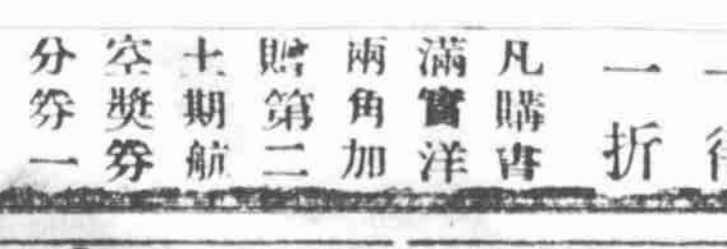 一折
凡購書
滿實洋
兩角加
贈第二
十期航
空獎券
分券一